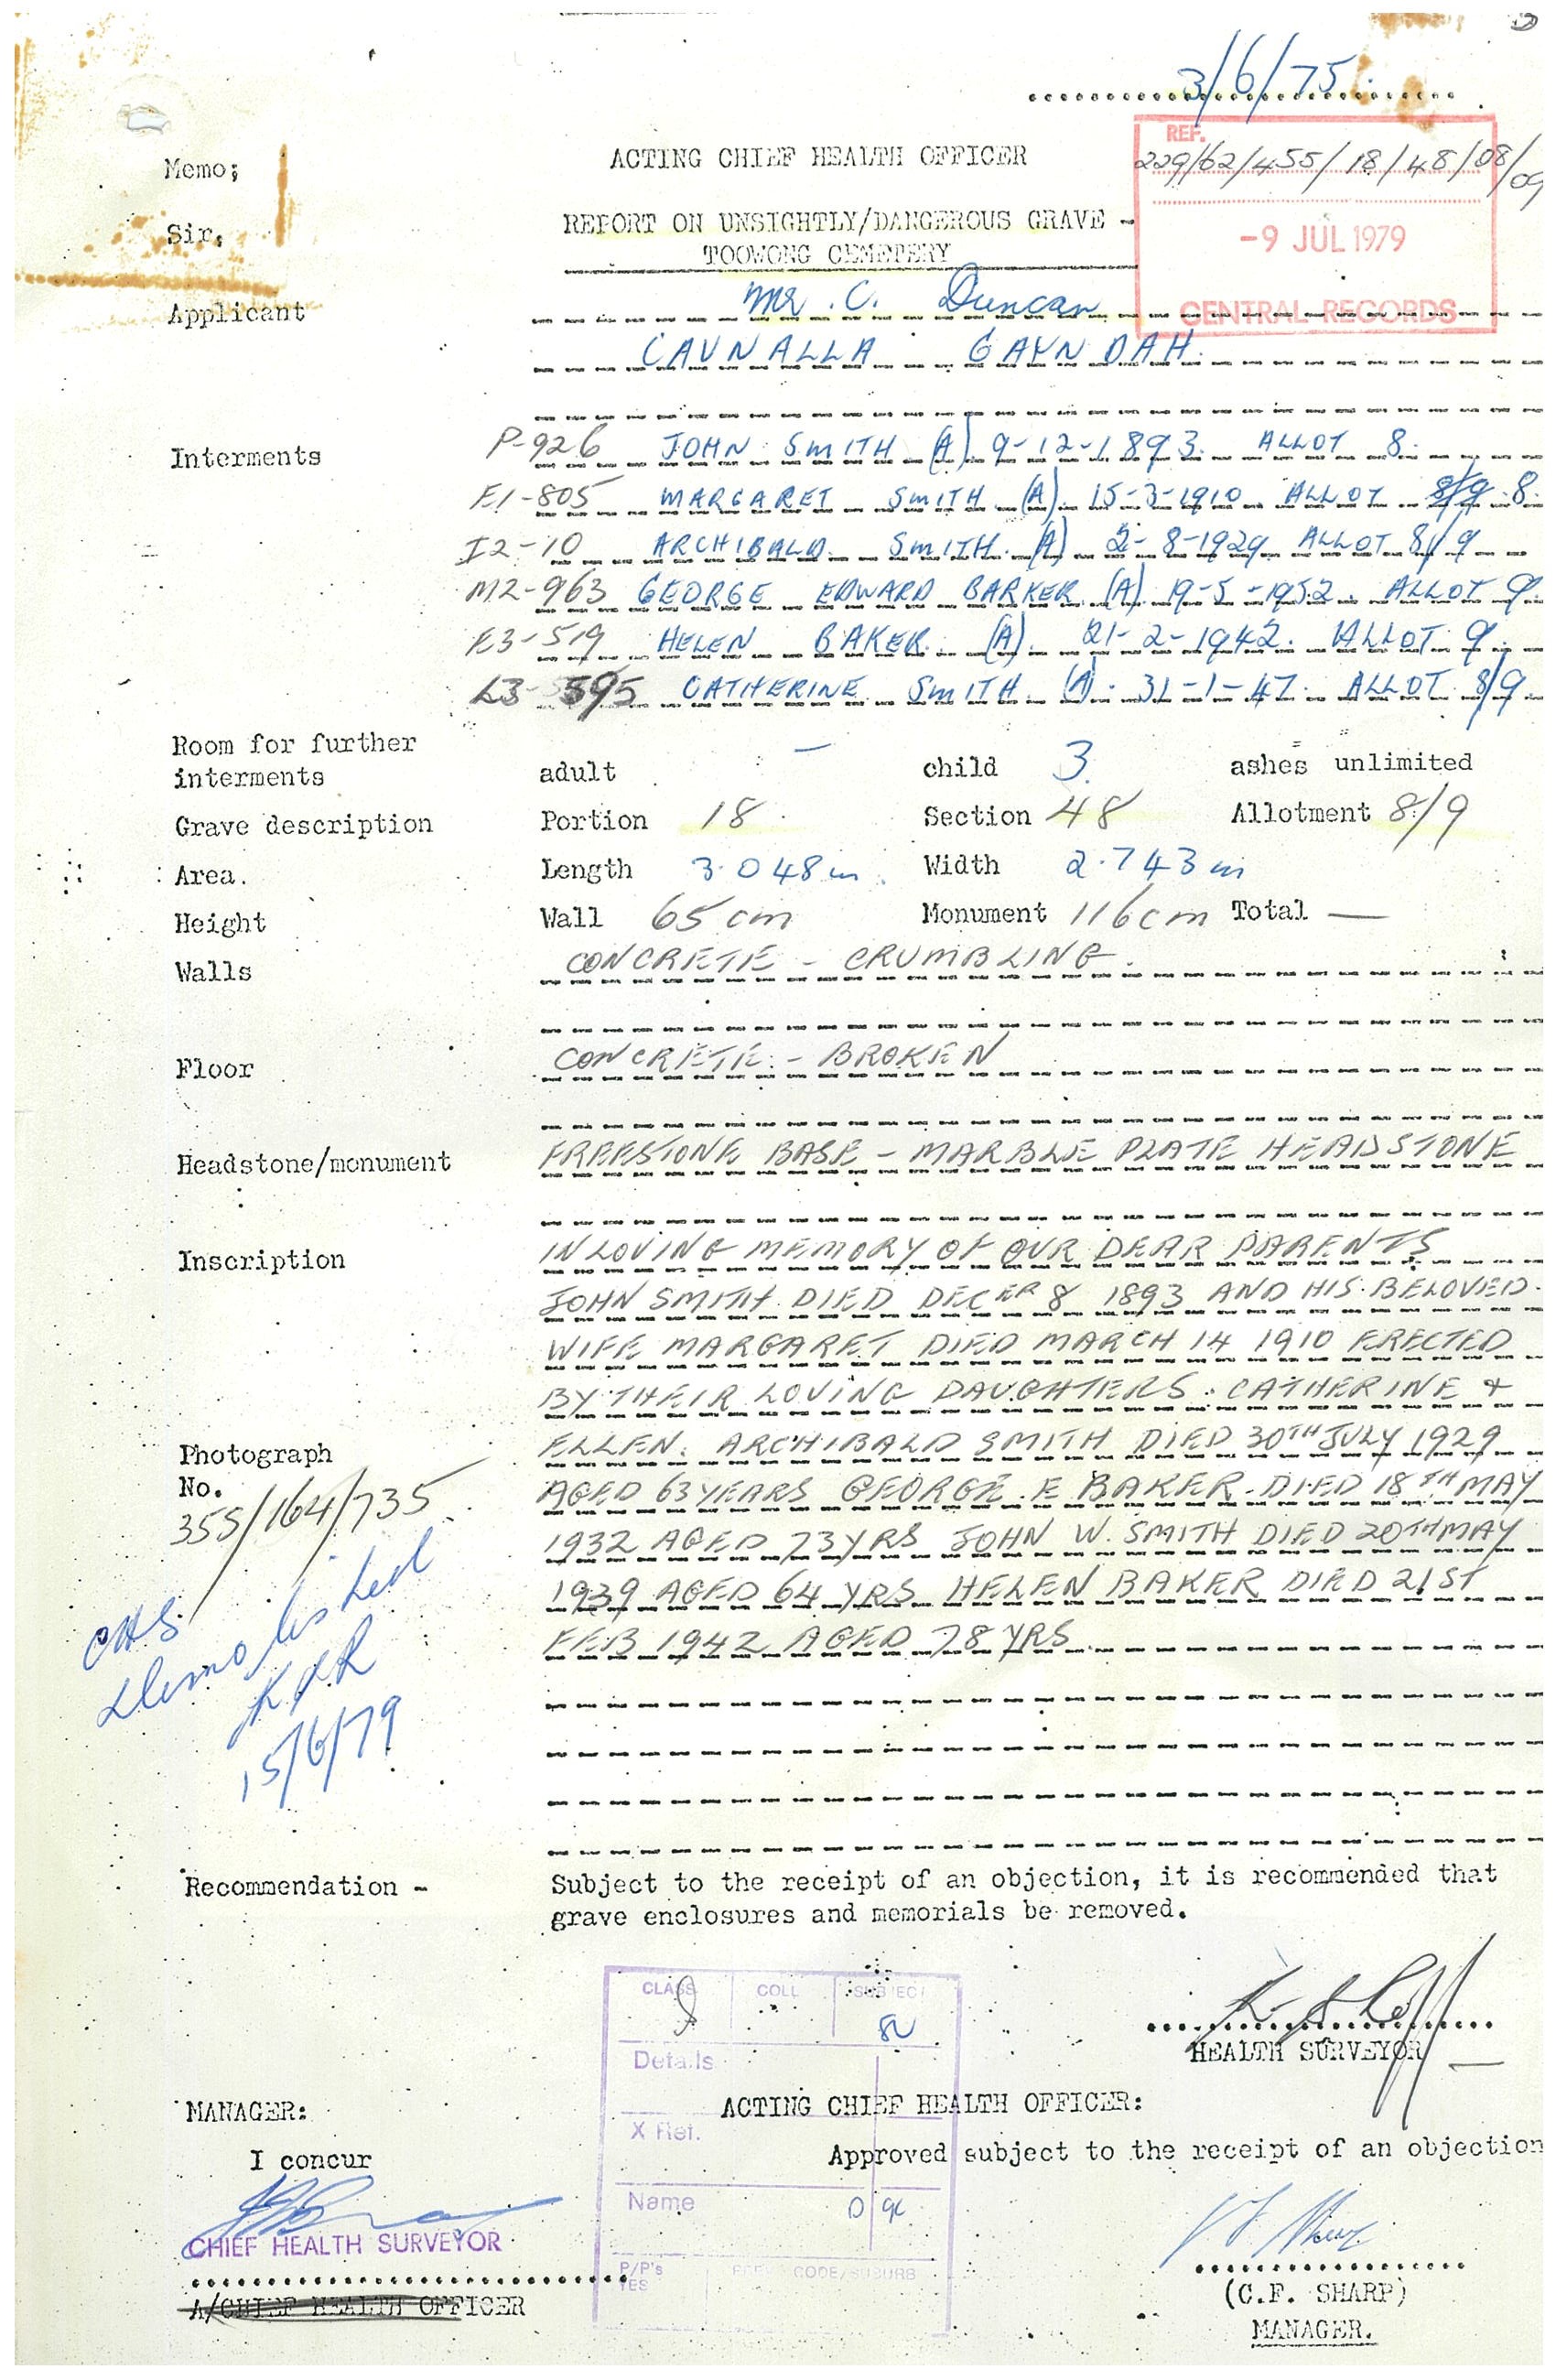 3/6/75
REF.
229/62/455/18/48/08/09
-9 JUL 1979
CENTRAL RECORDS
Memo;
ACTING CHIEF HEALTH OFFICER
Sir,
REPORT ON UNSIGHTLY/DANGEROUS GRAVE -
TOOWONG CEMETERY
Applicant Mr. C. Duncan
CAVNALLA GAYNDAH
Interments P-926 JOHN SMITH (A) 9-12-1893. ALLOT 8.
E1-805 MARGARET SMITH (A). 15-3-1910. ALLOT 8/9 8.
I2-10 ARCHIBALD SMITH. (A) 2-8-1929 ALLOT 8/9
M2-963 GEORGE EDWARD BARKER (A) 19-5-1932. ALLOT 9.
K3-519 HELEN BAKER. (A). 21-2-1942. ALLOT 9.
L3-595 CATHERINE SMITH. (A). 31-1-47. ALLOT 8/9.
Room for further
interments adult - child 3. ashes unlimited
Grave description Portion 18 Section 48 Allotment 8/9
Area. Length 3.048m Width 2.743m
Height Wall 65 cm Monument 116cm Total —
Walls CONCRETE - CRUMBLING.
Floor CONCRETE - BROKEN
Headstone/monument FREESTONE BASE - MARBLE PLATE HEADSTONE
Inscription IN LOVING MEMORY OF OUR DEAR PARENTS
JOHN SMITH DIED DECER 8 1893 AND HIS BELOVED
WIFE MARGARET DIED MARCH 14 1910 ERECTED
BY THEIR LOVING DAUGHTERS. CATHERINE &
ELLEN. ARCHIBALD SMITH DIED 30TH JULY 1929
AGED 63 YEARS GEORGE. E BAKER. DIED 18TH MAY
1932 AGED 73 YRS JOHN W. SMITH DIED 20TH MAY
1939 AGED 64 YRS HELEN BAKER DIED 21ST
FEB 1942 AGED 78 YRS
Photograph
No.
355/164/735
CHS
Demolished
15/6/79
Recommendation - Subject to the receipt of an objection, it is recommended that
grave enclosures and memorials be removed.
HEALTH SURVEYOR
CLASS COLL SUBJECT
Details
X Ref.
Name
P/P's
YES
CODE/SUBURB
MANAGER:
I concur
CHIEF HEALTH SURVEYOR
A/CHIEF HEALTH OFFICER
ACTING CHIEF HEALTH OFFICER:
Approved subject to the receipt of an objection
(C.F. SHARP)
MANAGER.